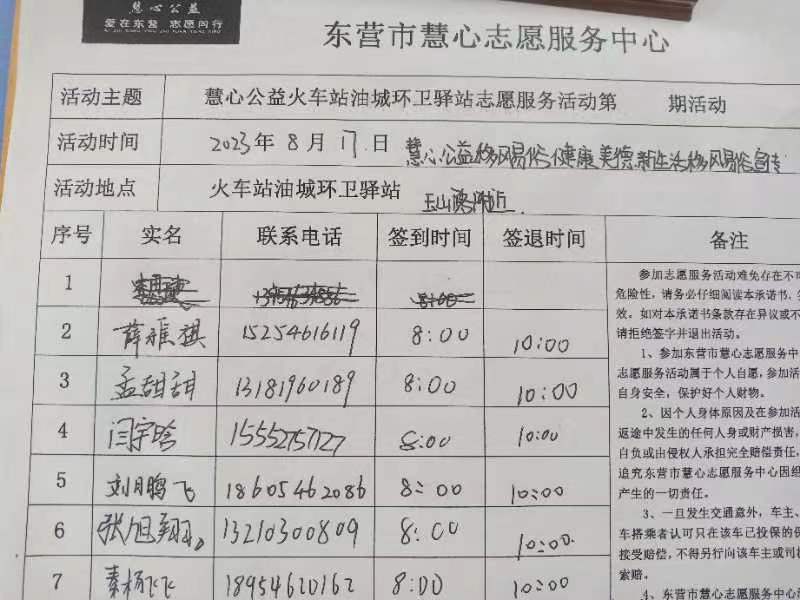 慧心公益
爱在东营 志愿同行
东营市慧心志愿服务中心
活动主题 慧心公益火车站油城环卫驿站志愿服务活动第 期活动
活动时间 2023年8月17日 慧心公益移风易俗健康美德新生活移风易俗宣专
活动地点 火车站油城环卫驿站 玉山湾附近
序号 实名 联系电话 签到时间 签退时间 备注
1 8:00
2 薛雅祺 15254616119 8:00 10:00
3 孟甜甜 13181960189 8:00 10:00
4 闫宇晗 15552757127 8:00 10:00
5 刘鹏飞 18605462086 8:00 10:00
6 张旭翔 13210300809 8:00 10:00
7 秦杨飞飞 18954620162 8:00 10:00
参加志愿服务活动难免存在不可
危险性，请务必仔细阅读本承诺书，
效。如对本承诺书条款存在异议或不
请拒绝签字并退出活动。
1、参加东营市慧心志愿服务中
志愿服务活动属于个人自愿，参加活
自身安全，保护好个人财物。
2、因个人身体原因及在参加活
返途中发生的任何人身或财产损害，
自负或由侵权人承担完全赔偿责任，
追究东营市慧心志愿服务中心因组
产生的一切责任。
3、一旦发生交通意外，车主、
车搭乘者认可只在该车已投保的
接受赔偿，不得另行向该车主或司
索赔。
4、东营市慧心志愿服务中心